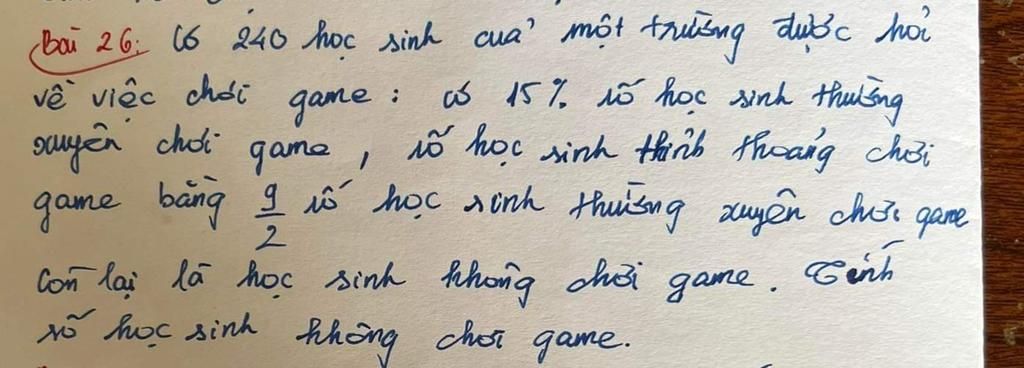 Bài 26: Có 240 học sinh của một trường được hỏi
về việc chơi game: có 15% số học sinh thường
xuyên chơi game, số học sinh thỉnh thoảng chơi
game bằng 9/2 số học sinh thường xuyên chơi game
Còn lại là học sinh không chơi game. Tính
số học sinh không chơi game.